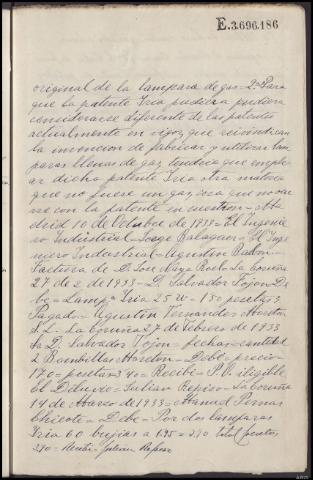 E.3.696.186
original de la lampara de gas = 2ª Para
que la patente Iria pudiera pudiera
considerarse diferente de las patentes
actualmente en vigor que reivindican
la invencion de fabricar y utilizar lam
paras llenas de gas, tendria que emple
ar dicha patente Iria otra materia
que no fuese un gas, cosa que no ocu
rre con la patente en cuestion = Ma
drid 10 de Octubre de 1933 = El Ingenie
ro Industrial = Jorge Balaguer = El Inge
niero Industrial = Agustin
Factura de D. Jose La Coruña
27 de 2 de 1933 = D. Salvador Tojon = De
be = Lampª Iria 25 W = 1'50 pesetas
Pagado = Agustin Fernandez
S. L. La Coruña 27 de Febrero de 1933
a D. Salvador Tojon = fecha = cantidad
2 Bombillas = Debe = precio =
1'70 = pesetas = 3'40 = Recibi = P. P. ilegible
El Deluvio = Julian Reposo = La Coruña
14 de Marzo de 1933 = Manuel
Chicote = Debe = Por dos lamparas
Iria 60 bujias a 1'95 = 3'90 total pesetas
3'90 = Recibi = Julian Reposo